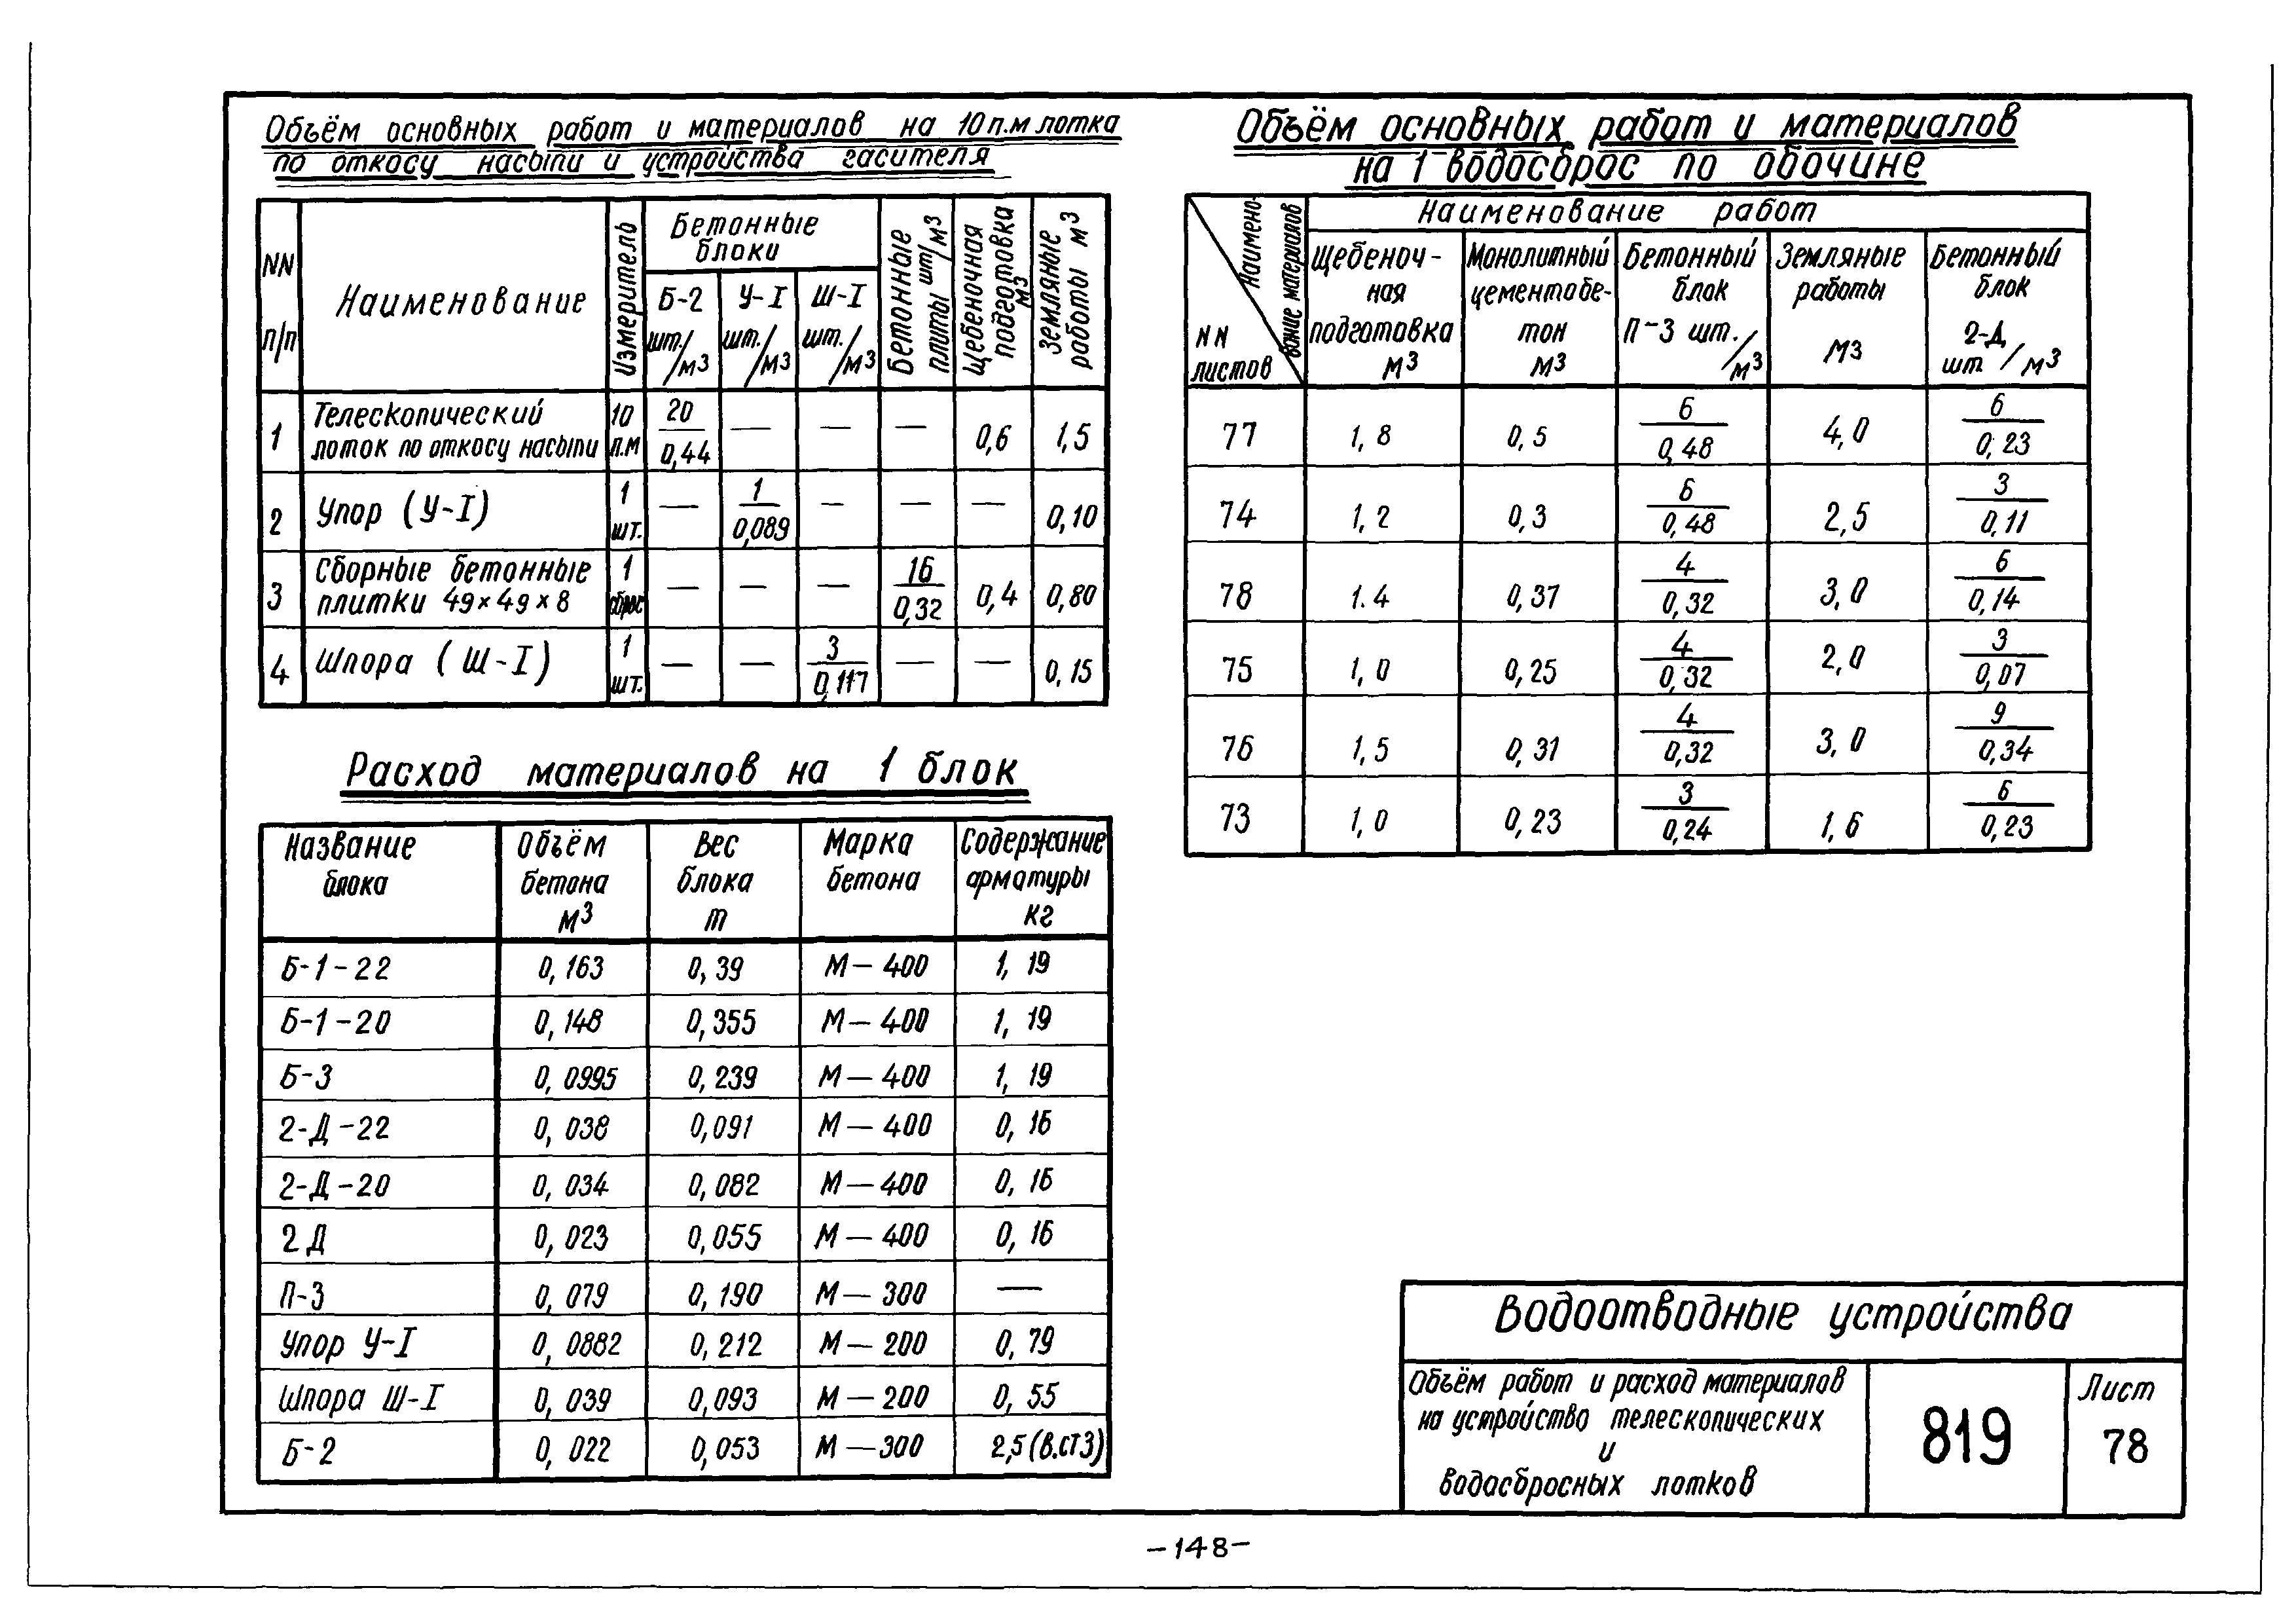 Объём основных работ и материалов на 10п.м лотка
по откосу насыпи и устройства гасителя
NN п/п
Наименование
Измеритель
Бетонные блоки
Б-2 шт./м3
У-I шт./м3
Ш-I шт./м3
Бетонные плиты шт/м3
Щебеночная подготовка м3
Земляные работы м3
1 Телескопический лоток по откосу насыпи 10 п.м 20/0,44 — — — 0,6 1,5
2 Упор (У-I) 1 шт. — 1/0,089 — — — 0,10
3 Сборные бетонные плитки 49×49×8 1 сброс — — — 16/0,32 0,4 0,80
4 Шпора (Ш-I) 1 шт. — — 3/0,117 — — 0,15
Расход материалов на 1 блок
Название блока
Объём бетона м3
Вес блока т
Марка бетона
Содержание арматуры кг
Б-1-22 0,163 0,39 М-400 1,19
Б-1-20 0,148 0,355 М-400 1,19
Б-3 0,0995 0,239 М-400 1,19
2-Д-22 0,038 0,091 М-400 0,16
2-Д-20 0,034 0,082 М-400 0,16
2Д 0,023 0,055 М-400 0,16
П-3 0,079 0,190 М-300 —
Упор У-I 0,0882 0,212 М-200 0,79
Шпора Ш-I 0,039 0,093 М-200 0,55
Б-2 0,022 0,053 М-300 2,5(В.СТ3)
Объём основных работ и материалов
на 1 водосброс по обочине
Наименование материалов
NN листов
Наименование работ
Щебеночная подготовка м3
Монолитный цементобетон м3
Бетонный блок П-3 шт./м3
Земляные работы м3
Бетонный блок 2-Д шт/м3
77 1,8 0,5 6/0,48 4,0 6/0,23
74 1,2 0,3 6/0,48 2,5 3/0,11
78 1.4 0,37 4/0,32 3,0 6/0,14
75 1,0 0,25 4/0,32 2,0 3/0,07
76 1,5 0,31 4/0,32 3,0 9/0,34
73 1,0 0,23 3/0,24 1,6 6/0,23
Водоотводные устройства
Объём работ и расход материалов
на устройство телескопических
и
водасбросных лотков
819
Лист
78
-148-